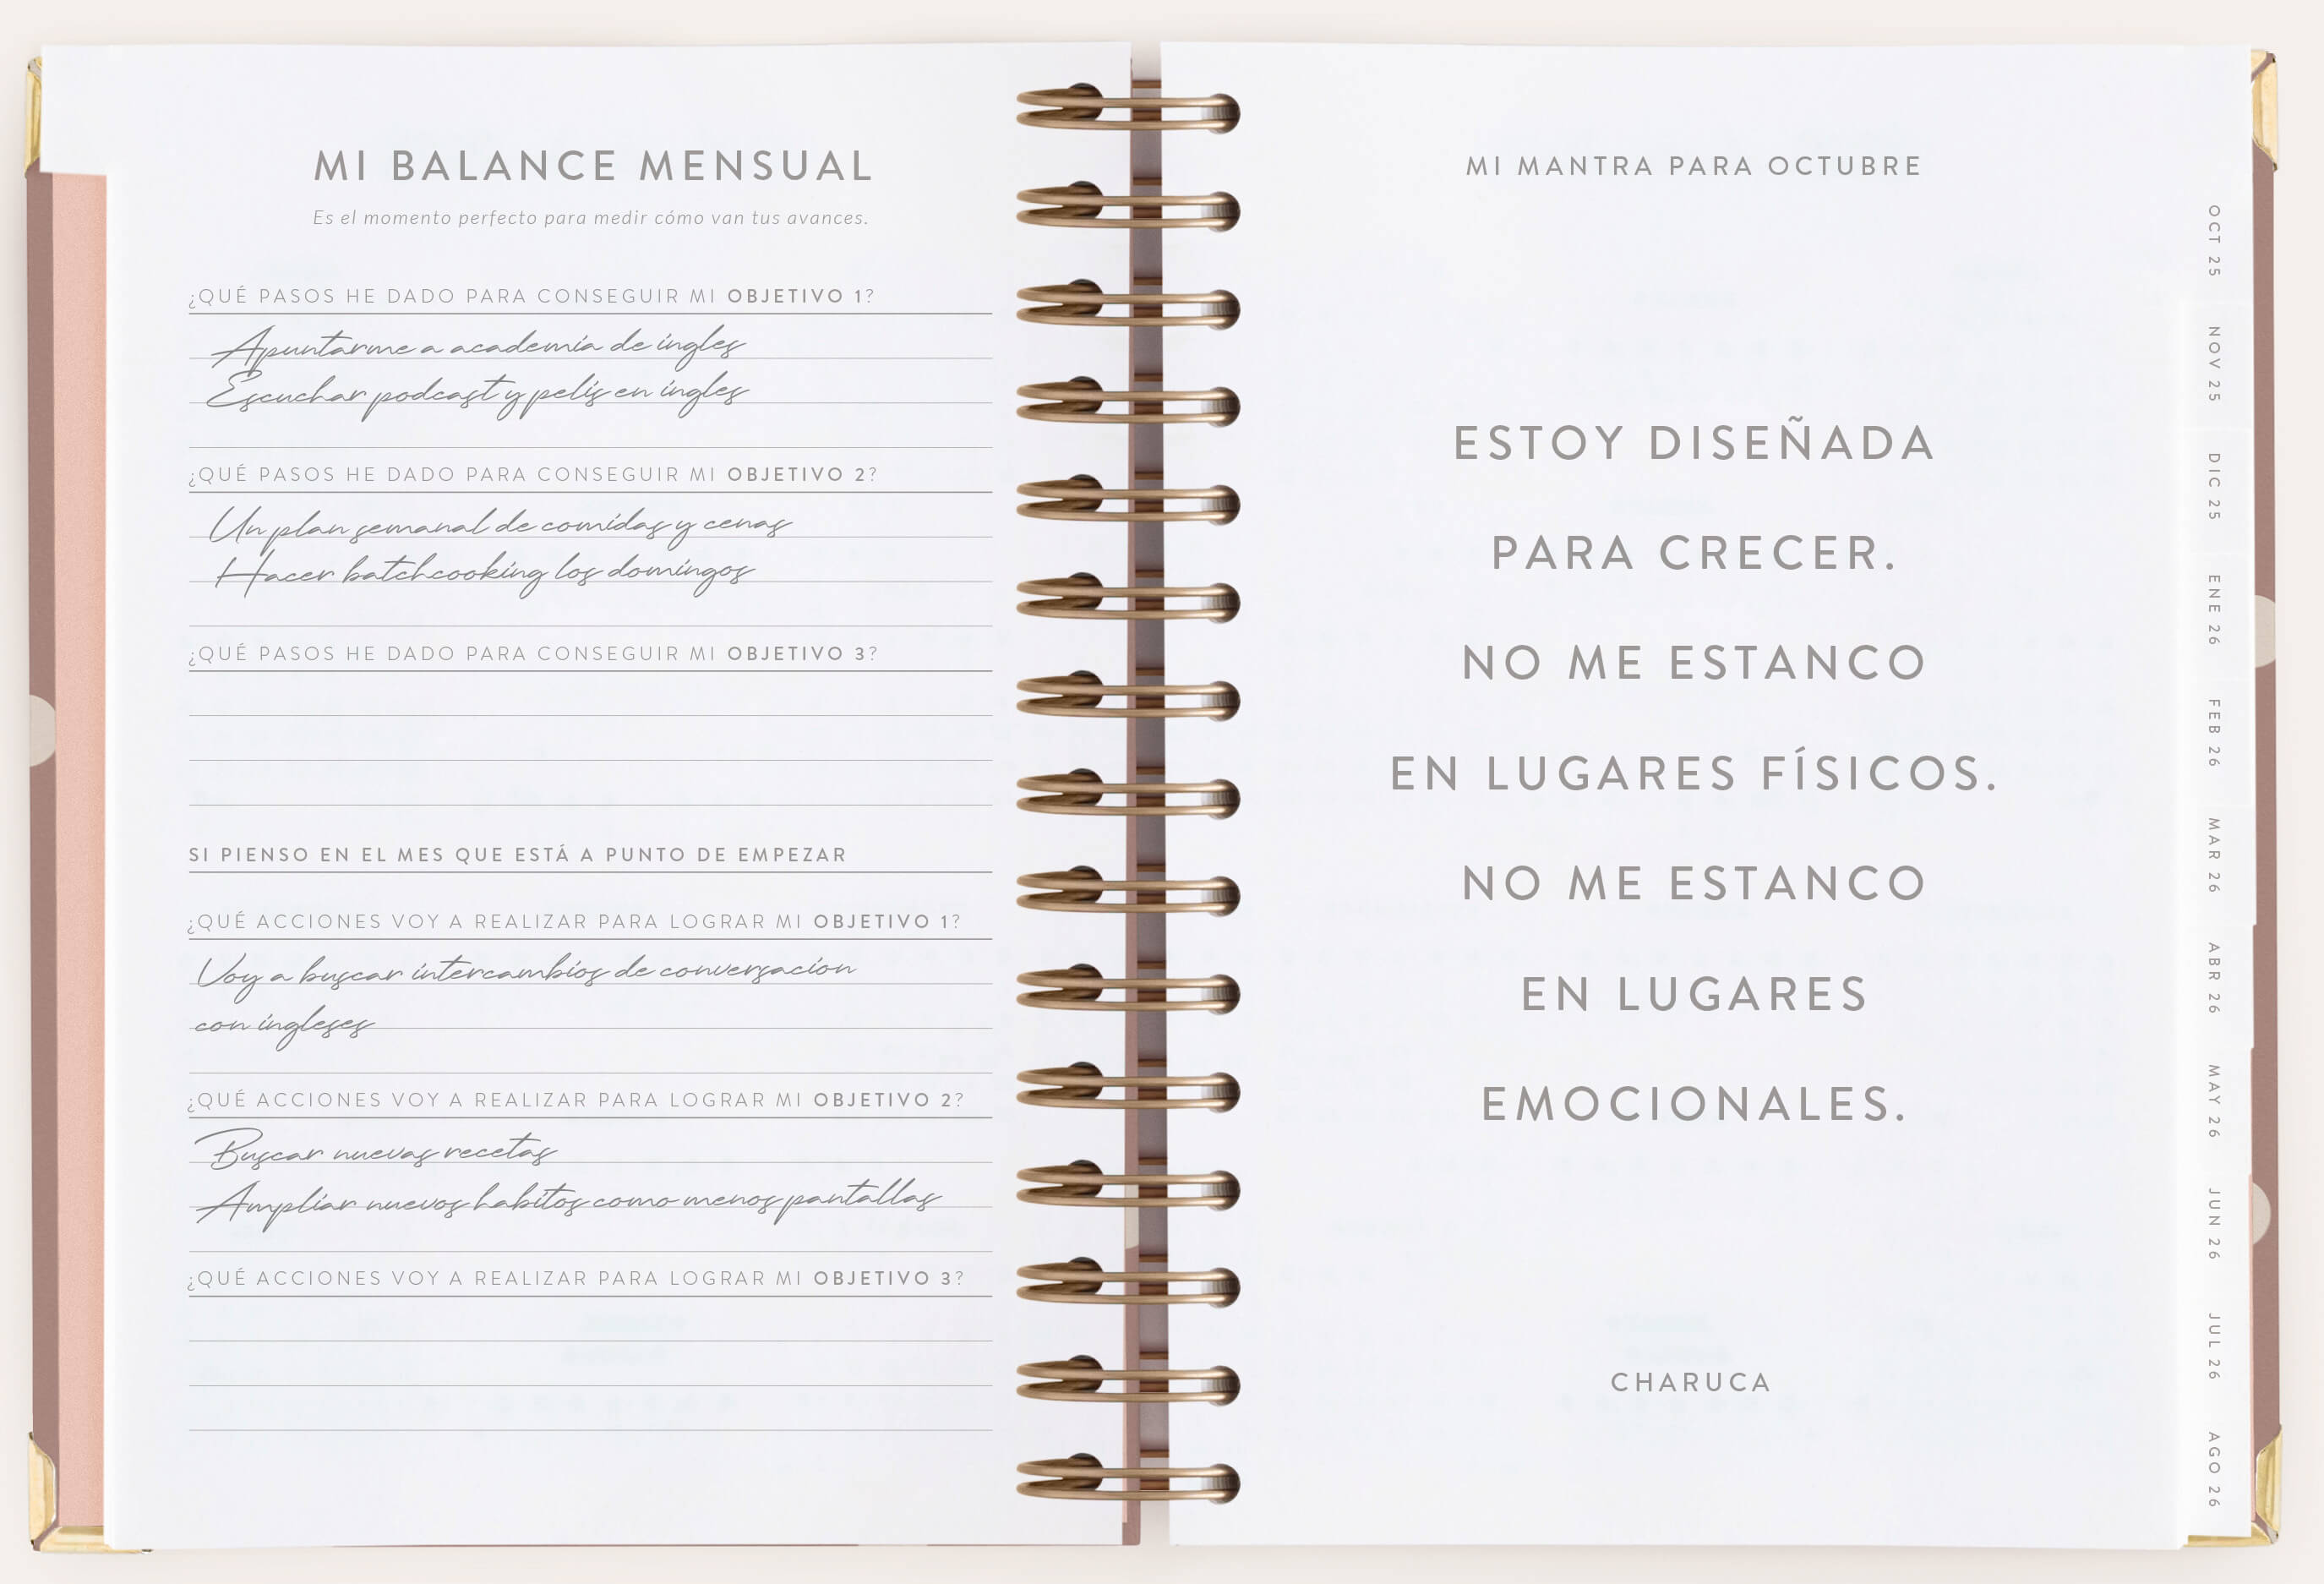 MI BALANCE MENSUAL
Es el momento perfecto para medir cómo van tus avances.
¿QUÉ PASOS HE DADO PARA CONSEGUIR MI OBJETIVO 1?
Apuntarme a academia de ingles
Escuchar podcast y pelis en ingles
¿QUÉ PASOS HE DADO PARA CONSEGUIR MI OBJETIVO 2?
Un plan semanal de comidas y cenas
Hacer batchcooking los domingos
¿QUÉ PASOS HE DADO PARA CONSEGUIR MI OBJETIVO 3?
SI PIENSO EN EL MES QUE ESTÁ A PUNTO DE EMPEZAR
¿QUÉ ACCIONES VOY A REALIZAR PARA LOGRAR MI OBJETIVO 1?
Voy a buscar intercambios de conversacion
con ingleses
¿QUÉ ACCIONES VOY A REALIZAR PARA LOGRAR MI OBJETIVO 2?
Buscar nuevas recetas
Ampliar nuevos habitos como menos pantallas
¿QUÉ ACCIONES VOY A REALIZAR PARA LOGRAR MI OBJETIVO 3?
MI MANTRA PARA OCTUBRE
ESTOY DISEÑADA
PARA CRECER.
NO ME ESTANCO
EN LUGARES FÍSICOS.
NO ME ESTANCO
EN LUGARES
EMOCIONALES.
CHARUCA
OCT 25
NOV 25
DIC 25
ENE 26
FEB 26
MAR 26
ABR 26
MAY 26
JUN 26
JUL 26
AGO 26